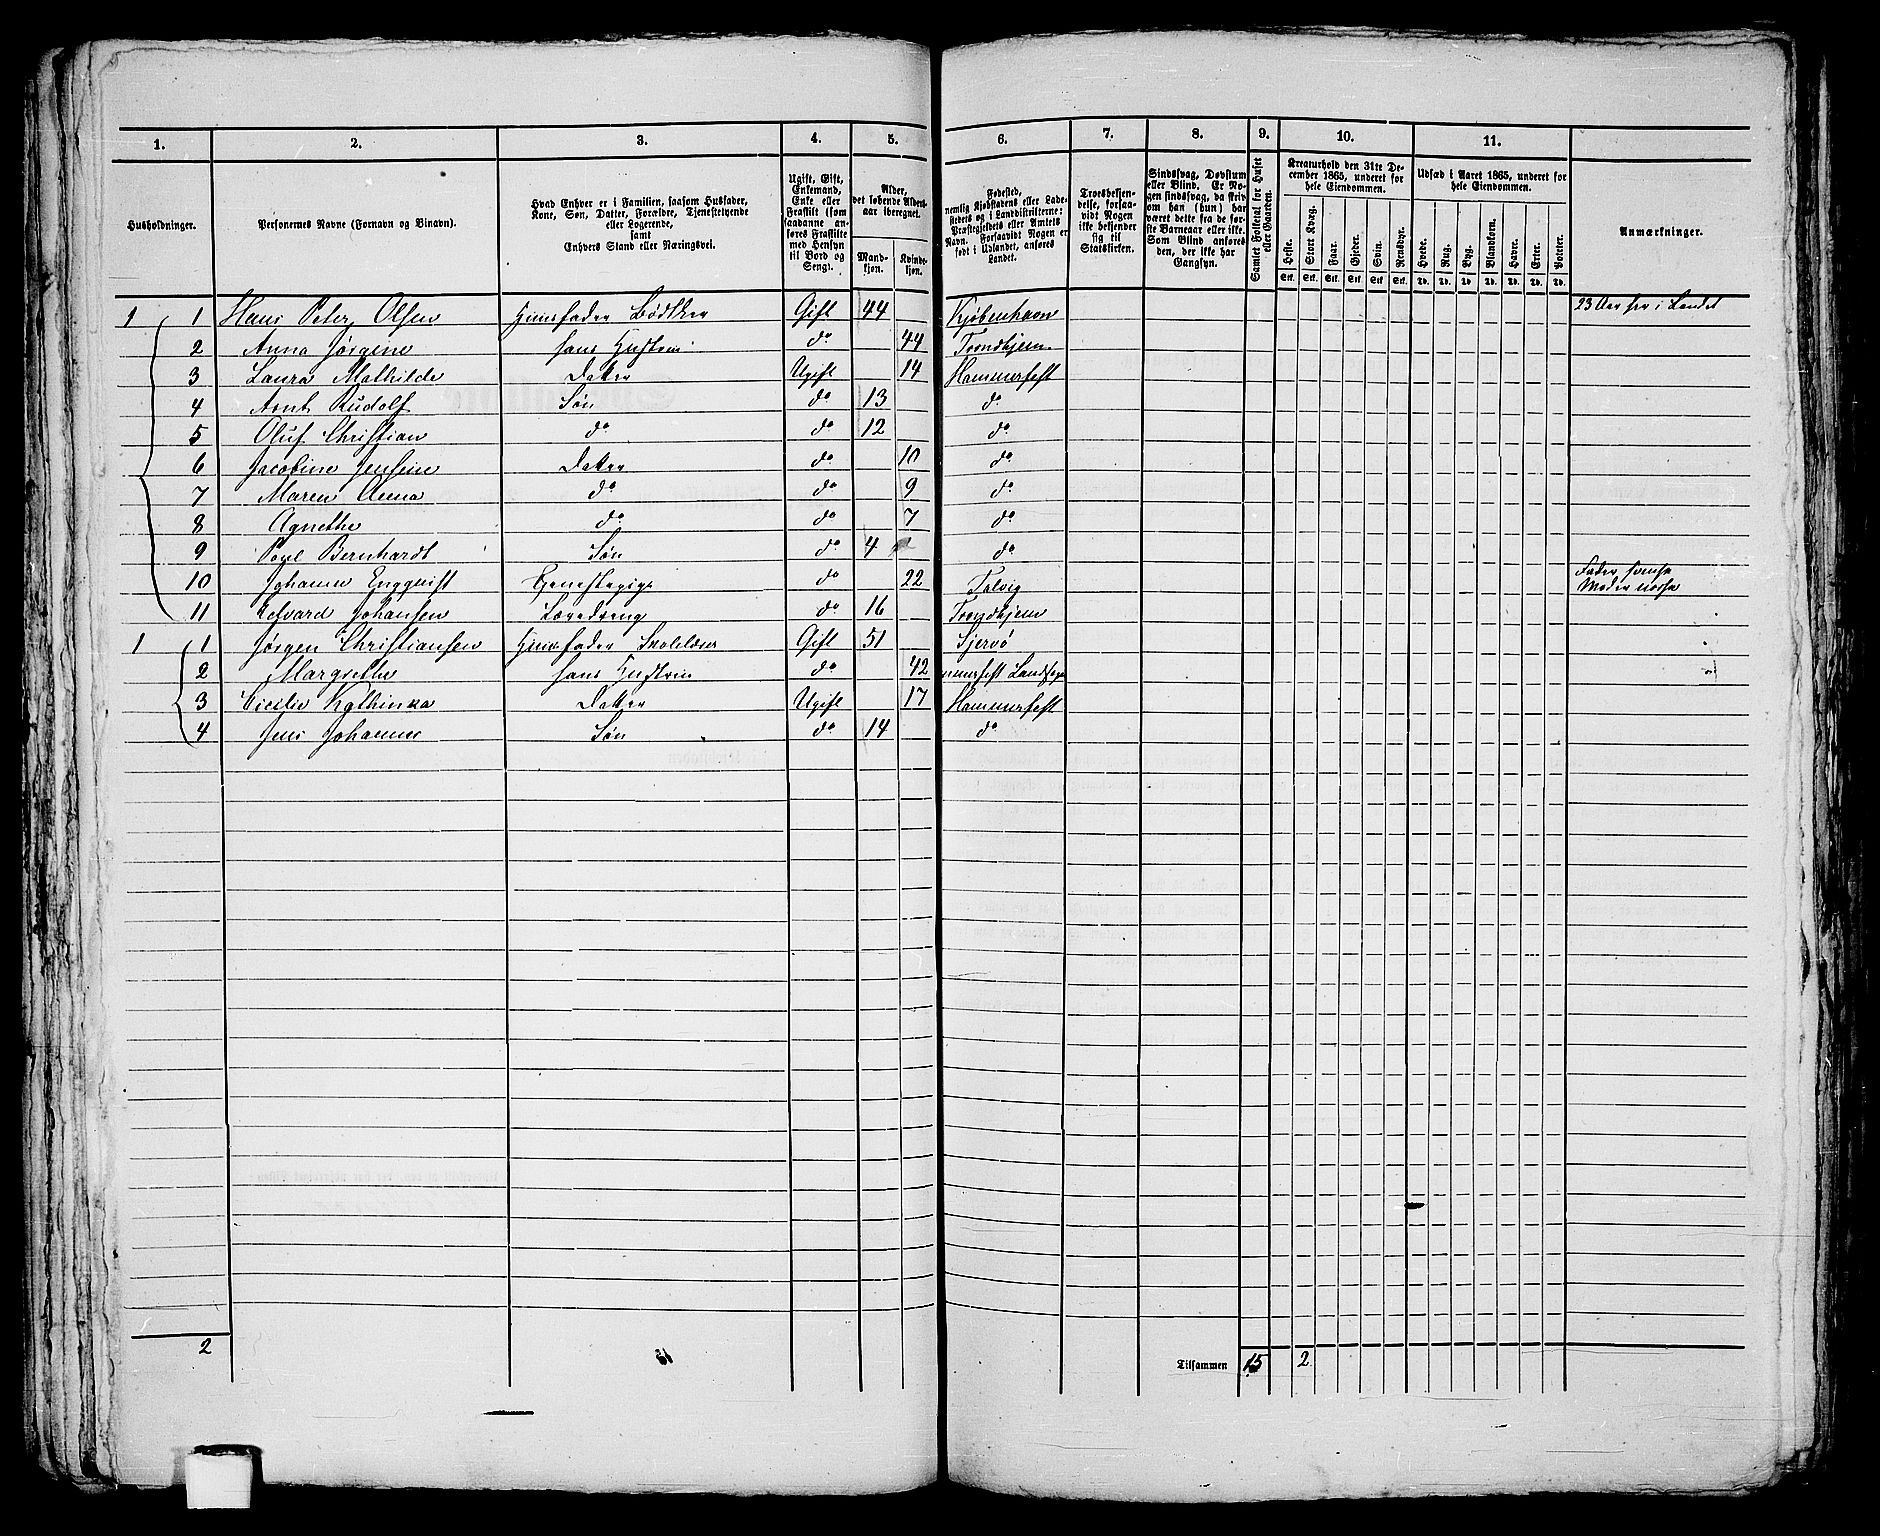 1. 2. 3. 4. 5. 6. 7. 8. 9. 10. 11.
Husholdninger.
Personernes Navne (Fornavn og Binavn).
Hvad Enhver er i Familien, saasom Husfader,
Kone, Søn, Datter, Forældre, Tjenestetyende
eller Logerende,
samt
Enhvers Stand eller Næringsvei.
Ugift, Gift,
Enkemand,
Enke eller
Fraskilt (som
saadanne an-
føres Fraskilte
med Hensyn
til Bord og
Seng).
Alder,
det løbende Alders-
aar iberegnet.
Mand-
kjøn.
Kvinde-
kjøn.
Fødested,
nemlig Kjøbstadens eller Lade-
stedets og i Landdistrikterne:
Præstegjeldets eller Amtets
Navn. Forsaavidt Nogen er
født i Udlandet, anføres
Landet.
Troesbekjen-
delse, forsaa-
vidt Nogen
ikke bekjender
sig til
Statskirken.
Sindssvag, Døvstum
eller Blind. Er No-
gen sindssvag, da skriv
om han (hun) har
været dette fra de før-
ste Barneaar eller ikke.
Som Blind anføres
den, der ikke har
Gangsyn.
Samlet Folketal for Huset
eller Gaarden.
Kreaturhold den 31te De-
cember 1865, underet for
hele Eiendommen.
Heste. Stort Kvæg. Faar. Gjeder. Svin. Rensdyr.
Stk. Stk. Stk. Stk. Stk. Stk.
Udsæd i Aaret 1865, underet for
hele Eiendommen.
Hvede. Rug. Byg. Blandkorn. Havre. Erter. Poteter.
Td. Td. Td. Td. Td. Td. Td.
Anmærkninger.
1 1 Hans Peter Olsen Huusfader Bødkker Gift 44 Kjøbenhavn 23 Aar her i Landet
2 Anna Jørgine hans Hustru do 44 Trondhjem
3 Laura Mathilde Datter Ugift 14 Hammerfest
4 Arnt Rudolf Søn do 13 do
5 Oluf Christian do do 12 do
6 Jacobine Jensine Datter do 10 do
7 Maren Anna do do 9 do
8 Agnethe do do 7 do
9 Povl Bernhardt Søn do 4 do
10 Johanne Engqvist Tjenestepige do 22 Talvig Fader svensk Moder norsk
11 Edvard Johansen Læredreng do 16 Trondhjem
1 1 Jørgen Christiansen Huusfader Skolelærer Gift 51 Kjervø
2 Margrethe hans Hustru do 42 Hammerfest Landsogn
3 Cicilie Kathinka Datter Ugift 17 Hammerfest
4 Jens Johannes Søn do 14 do
2
Tilsammen 15 2